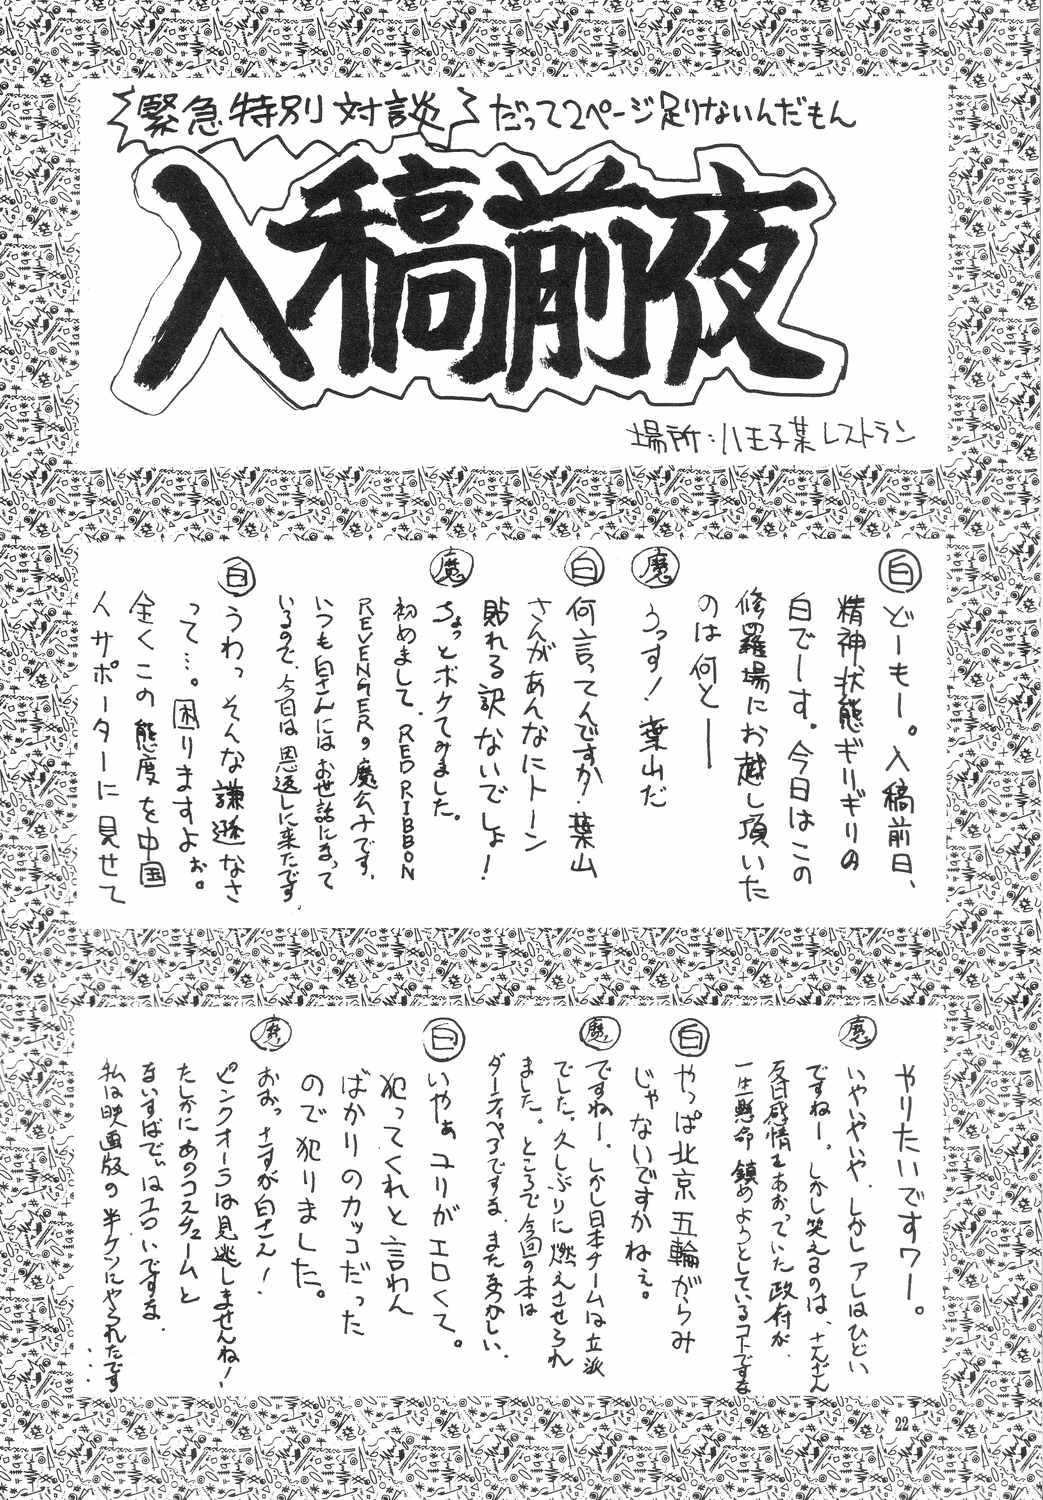 緊急特別対談 だって2ページ足りないんだもん
入稿前夜
場所:八王子某レストラン
白
どーもー。入稿前日、
精神状態ギリギリの
白でーす。今日はこの
修羅場にお越し頂いた
のは何とー
魔
うっす!葉山だ
白
何言ってんですか!葉山
さんがあんなにトーン
貼れる訳ないでしょ!
魔
ちょっとボケてみました。
初めまして、RED RIBBON
REVENGERの魔公子です。
いつも白さんにはお世話になって
いるので、今日は恩返しに来たです。
白
うわっ そんな謙遜なさ
って…。困りますよぉ。
全くこの態度を中国
人サポーターに見せて
やりたいですワー。
魔
いやいやいや、しかしアレはひどい
ですねー。しかし笑えるのは、さんざん
反日感情をあおっていた政府が、
一生懸命 鎮めようとしているコトですな
白
やっぱ北京五輪がらみ
じゃないですかねぇ。
魔
ですねー。しかし日本チームは立派
でした。久しぶりに燃えさせられ
ました。ところで今回の本は
ダーティペアですな、またなつかしい。
白
いやぁ ユリがエロくて。
犯ってくれと言わん
ばかりのカッコだった
ので犯りました。
魔
おおっ さすが白さん!
ピンクオーラは見逃しませんね!
たしかにあのコスチュームと
ないすばでぃはエロいですな。
私は映画版の半ケツにやられたです
…
22